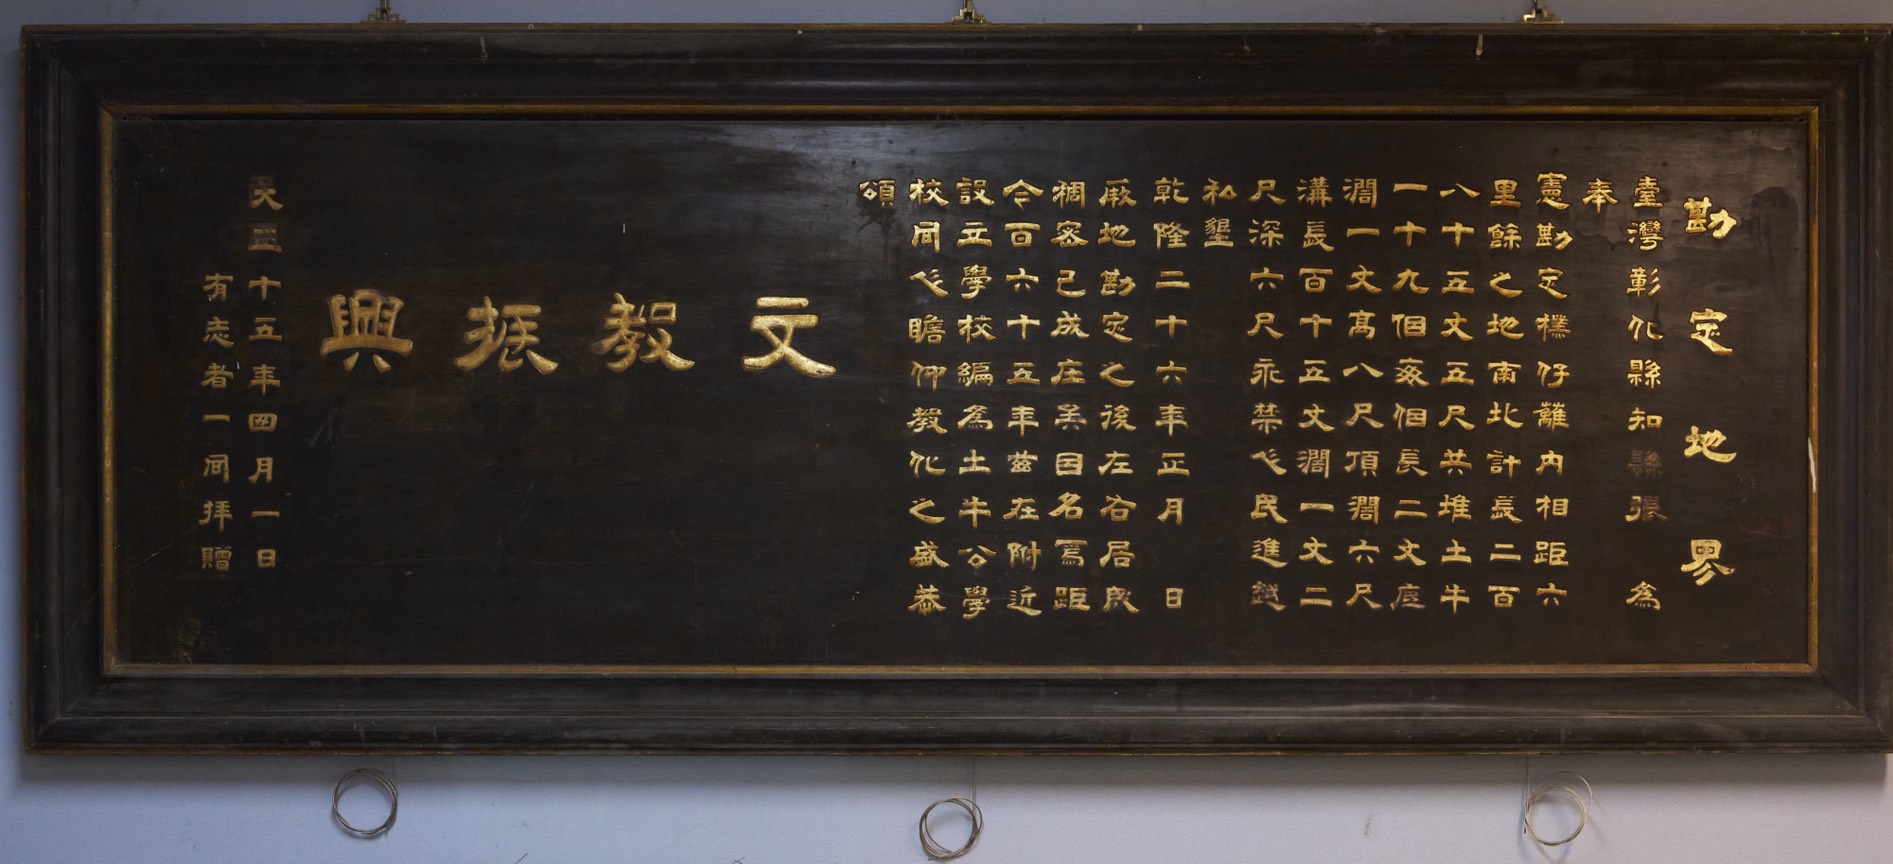 勘定地界
臺灣彰化縣知縣張 為
奉
憲勘定樸仔籬內相距六
里餘之地南北計長二百
八十五丈五尺共堆土牛
一十九個每個長二丈底
濶一丈高八尺頂濶六尺
溝長百十五丈濶一丈二
尺深六尺永禁人民進越
私墾
乾隆二十六年正月 日
厥地勘定之後左右居
稠密已成庄矣因名焉距
今百六十五年茲在附近
設立學校編為土牛公學
校同人瞻仰教化之盛恭
頌
文教振興
民国十五年四月一日
有志者一同拜贈